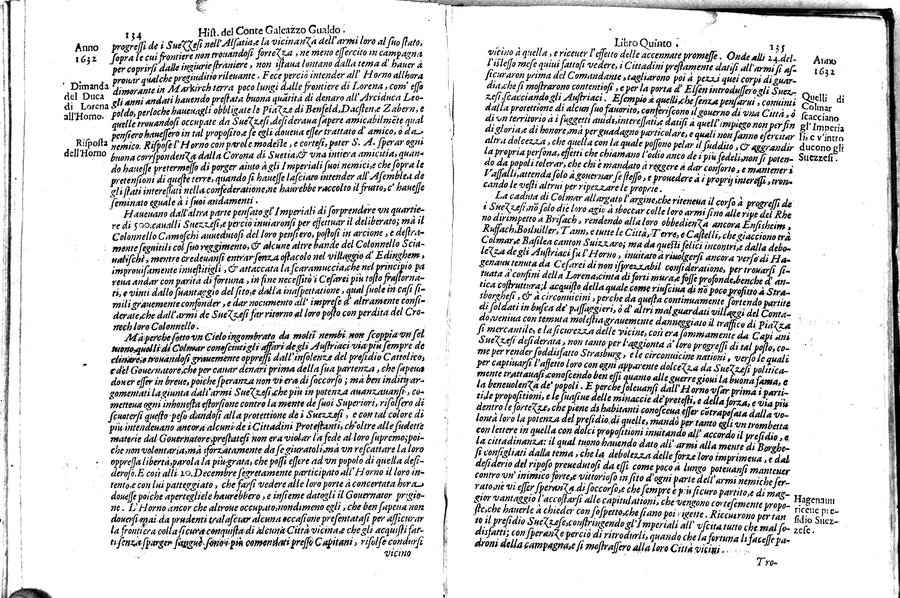 134 Hist. del Conte Galeazzo Gualdo.
Anno
1632
progressi de i Suezzesi nell'Alsatia, e la vicinanza dell'armi loro al suo stato,
sopra le cui frontiere non trouandosi fortezza, ne meno essercito in campagna
per coprirsi dalle ingiurie straniere, non istaua lontano dalla tema d'hauer à
prouar qualche pregiuditio rileuante. Fece perciò intender all'Horno allhora
Dimanda
del Duca
di Lorena
all'Horno.
dimorante in Markirch terra poco lungi dalle frontiere di Lorena, com'esso
gli anni andati hauendo prestata buona quãtità di denaro all'Arciduca Leo-
poldo, perloche haueua gli obbligate le Piazze di Benfeld, Dacstena Zabern, e
quelle trouandosi occupate da Suezzesi, desideraua sapere amicabilmẽte qual
pensiero hauessero in tal proposito, e se egli doueua esser trattato d'amico, ò da
Risposta
dell'Horno
nemico. Rispose l'Horno con parole modeste, e cortesi, poter S. A. sperar ogni
buona correspondenza dalla Corona di Suetia, & vna intiera amicitia, quan-
do hauesse pretermesso di porger aiuto à gli Imperiali suoi nemici, e che sopra le
pretensioni di queste terre, quando si hauesse lasciato intender all'Asemblea de
gli stati interessati nella confederatione, ne haurebbe raccolto il frutto, c'hauesse
seminato eguale à i suoi andamenti.
Haueuano dall'altra parte pensato gl'Imperiali di sorprendere vn quartie-
re di 500. caualli Suezzesi, e perciò inuiarono per effettuar il deliberato; mà il
Colonnello Camoschi auuedutosi del loro pensiero, postosi in arcione, e destra-
mente seguitili col suo reggimento, & alcune altre bande del Colonnello Scia-
ualischi, mentre credeuansi entrar senza ostacolo nel villaggio d'Edinghem,
improuisamente inuestitigli, & attaccata la scaramuccia, che nel principio pa
reua andar con partita di fortuna, in fine necessitò i Cesarei più tosto frastorna-
ti, e vinti dallo suantaggio del sito, e dalla inaspettatione, qual suole in casi si-
mili grauemente confonder, e dar nocumento all'imprese d'altramente consi-
derate, che dall'armi de Suezzesi far ritorno al loro posto con perdita del Cro-
nech loro Colonnello.
Mà perche sotto vn Cielo ingombrato da molti nembi non scoppia vn sol
tuono, quelli di Colmar conosciuti gli affari degli Austriaci via più sempre de
clinare, e trouandosi grauemente oppressi dall'insolenze del presidio Cattolico,
e del Gouernatore, che per cauar denari prima della sua partenza, che sapeua
douer esser in breue, poiche speranza non vi era di soccorso; mà ben indity ar-
gomentati la giunta dall'armi Suezzesi, che più in potenza auanzauansi, co-
metteua ogni inhonesta estorsione contra la mente de suoi Superiori, risolsero di
scuotersi questo peso dandosi alla protettione de i Suezzesi, e con tal colore di
più intendeuano ancora alcuni de i Cittadini Protestanti, ch'oltre alle sudette
materie dal Gouernatore, prestatesi non era violar la fede al loro supremo; poi-
che non volontaria, mà sforzatamente da se giuratoli, mà vn rescattar la loro
oppressa libertà, parola la più grata, che possi essere ad vn popolo di quella desi-
deroso. E così alli 20. Decembre segretamente participato all'Horno il loro in-
tento, e con lui patteggiato, che farsi vedere alle loro porte à concertata hora
douesse poiche apertegliele haurebbero, e insieme datogli il Gouernator prigio
ne. L'Horno ancor che altroue occupato, nondimeno egli, che ben sapeua non
douersi mai da prudenti tralasciar alcuna occasione presentatasi per assicurar
la frontiera colla sicura conquista di alcuna Città vicina, e che gli acquisti fat-
ti senza sparger sangue sono i più comendati presso Capitani, risolse condursi
vicino
Libro Quinto. 135
Anno
1632
vicino à quella, e riceuer l'effetto delle accennate promesse. Onde alli 24. del-
l'istesso mese quiui fattosi vedere, i Cittadini prestamente datisi all'armi si as-
sicuraron prima del Comandante, e tagliarono poi à pezzi quei corpi di guar-
dia, che si mostrarono contentiosi, e per la porta d'Elsen introdussero gli Suez-
Quelli di
Colmar
scacciano
gl'Imperia
li, e v'intro
ducono gli
Suezzesi.
zesi scacciando gli Austriaci. Esempio à quelli, che senza pensarui, conuinti
dalla protettione di alcun suo fauorito, conferiscono il gouerno di vna Città, ò
di vn territorio à i suggetti auidi, interessati, e datisi à quell'impiego non per fin
di gloria, e di honore, mà per guadagno particolare, e quali non sanno esercitar
altra dolcezza, che quella con la quale possono pelar il suddito, & aggrandir
la propria persona, effetti che chiamano l'odio anco de i più fedeli, non si poten-
do da popoli tolerare, che chi è mandato à reggere à dar conforto, e mantener i
Vassalli, attenda solo à gouernar se stesso, e prouedere à i proprij interessi, tron-
cando le vesti altrui per ripezzare le proprie.
La caduta di Colmar allargato l'argine, che riteneua il corso à progressi de
i Suezzesi, nõ solo die loro agio à sboccar colle loro armi sino alle ripe del Rhe
no dirimpetto à Brisach, rendendo alla loro obbedienza ancora Ensisheim,
Ruffach, Bolsuiller, Tann, e tutte le Città, Terre, e Castelli, che giacciono trà
Colmar, e Basilea canton Suizzaro; ma da questi felici incontri, e dalla debo-
lezza de gli Austriaci sù l'Horno, inuitato à riuolgersi ancora verso di Ha-
genau tenuta da Cesarei di non isprezzabil consideratione, per trouarsi si-
tuata à confini della Lorena, cinta di forti mura, e fosse profonde, benche d'an-
tica costruttura; l'acquisto della quale come riusciua di nõ poco profitto à Stra-
sborghesi, & à circonuicini, perche da questa continuamente sortendo partite
di soldati in busca de' passaggieri, ò d'altri mal guardati villaggi del Conta-
do, veniua con temuta molestia grauemente danneggiato il traffico di Piazza
sì mercantile, e la sicurezza delle vicine, così era sommamente da Capi ani
Suezzesi desiderata, non tanto per l'aggionta à loro progressi di tal posto, co-
me per render soddisfatto Strasburg, e le circonuicine nationi, verso le quali
per captiuarsi l'affetto loro con ogni apparente dolcezza da Suezzesi politica-
mente trattauasi, conoscendo ben essi quanto alle guerre gioui la buona fama, e
la beneuolenza de' popoli. E perche soleuansi dall'Horno vsar prima i parti-
ti, le propositioni, e le suasiue delle minaccie, de' pretesti, e della forza, e via più
dentro le fortezze, che piene di habitanti conosceua esser cõtrapesata dalla vo-
lontà loro la potenza del presidio, di quelle, mandò per tanto egli vn trombetta
con lettere in quella con dolci propositioni inuitando all'accordo il presidio, e
la cittadinanza: il qual tuono hauendo dato all'armi alla mente di Borghe-
si consigliati dalla tema, che la debolezza delle forze loro imprimeua, e dal
desiderio del riposo preuedutosi da essi come poco à lungo poteuansi mantener
contro vn'inimico forte, e vittorioso in sito d'ogni parte dell'armi nemiche ser-
rato, nè vi esser speranza di soccorso, e che sempre è più sicuro partito, e di mag-
gior vantaggio l'accostarsi alle capitulationi, che vengono cortesemente propo-
ste, che hauerle à chieder con sospetto, che siano poi negate. Riceuerono per tan
Hagenau
riceue pre-
sidio Suez-
zese.
to il presidio Suezzese, constringendo gl'Imperiali all'vscita tutto che mal so-
disfatti; con speranze perciò di ritrodurli, quando che la fortuna li facesse pa-
droni della campagna, e si mostrassero alla loro Città vicini.
Tro-